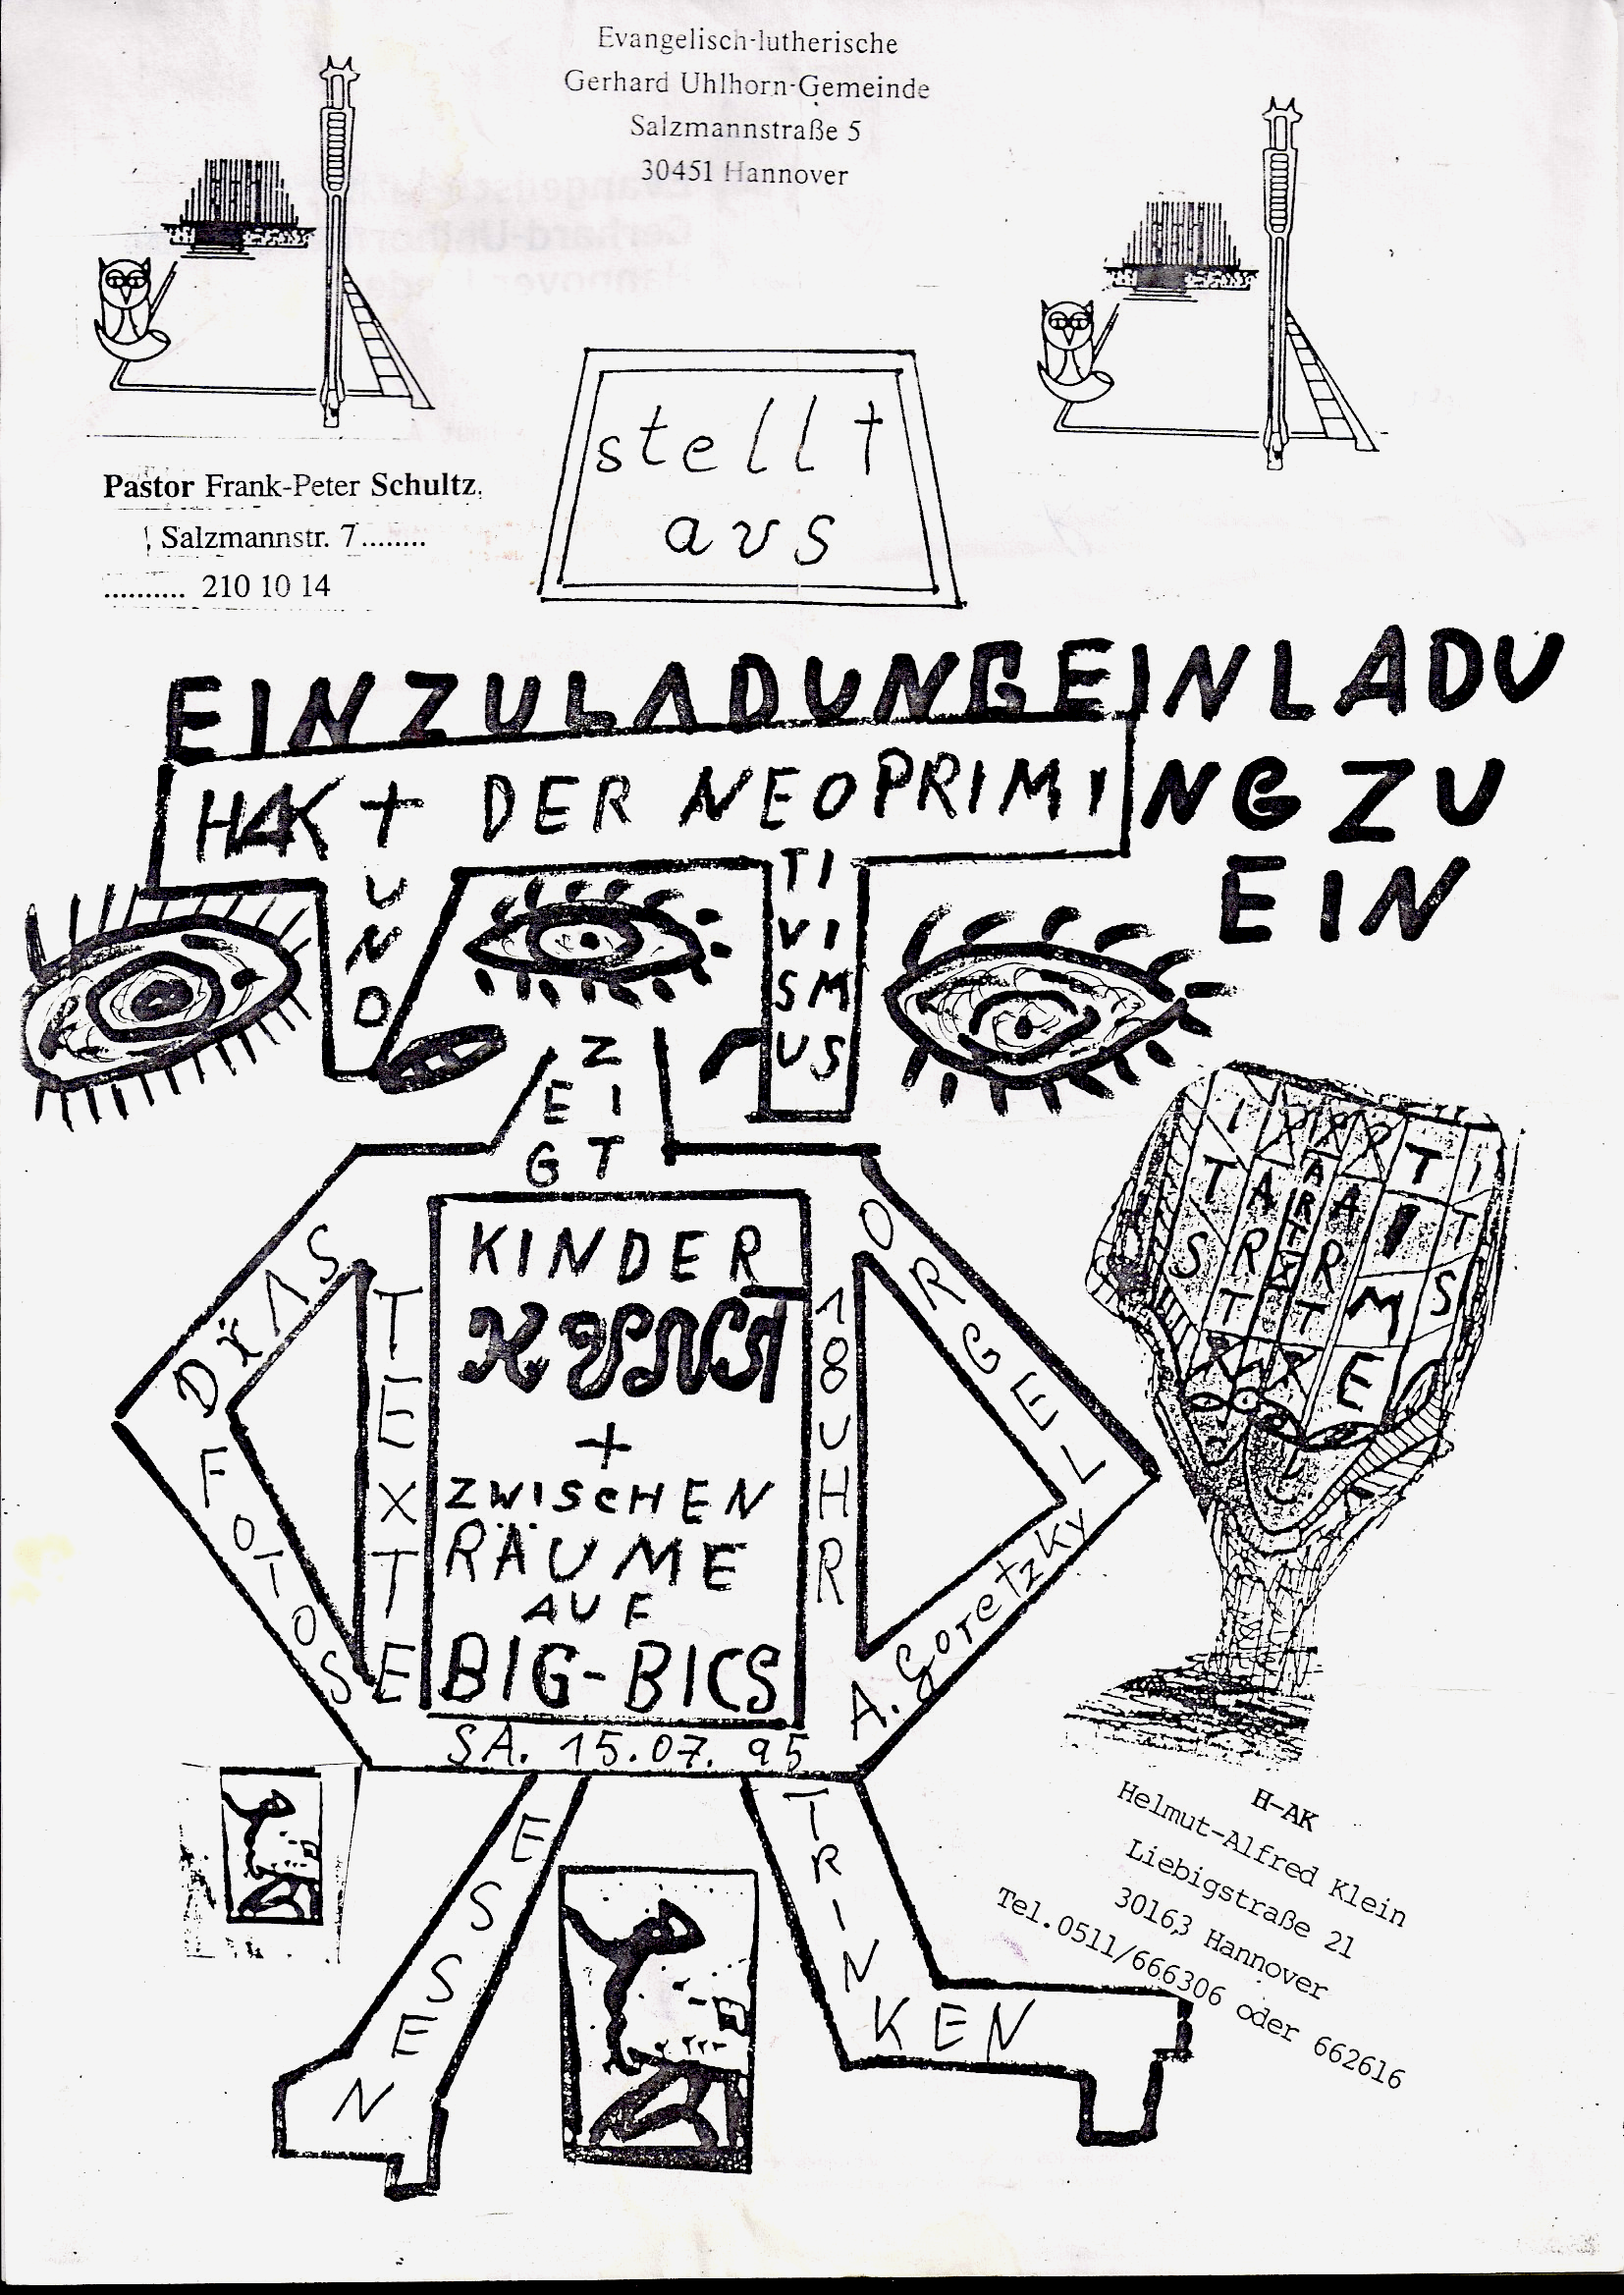 Evangelisch-lutherische
Gerhard Uhlhorn-Gemeinde
Salzmannstraße 5
30451 Hannover
stellt
aus
Pastor Frank-Peter Schultz
Salzmannstr. 7........
.......... 210 10 14
EINZULADUNGEINLADU
NGZU
EIN
HAK + DER NEOPRIMI
UND
TI
VI
SM
US
ZEIGT
KINDER
KUNST
+
ZWISCHEN
RÄUME
AUF
BIG-BICS
DIAS
FOTOS
TEXTE
18 UHR
ORGEL
A. Goretzky
SA. 15.07.95
ESSEN
TRINKEN
H-AK
Helmut-Alfred Klein
Liebigstraße 21
30163 Hannover
Tel.0511/666306 oder 662616